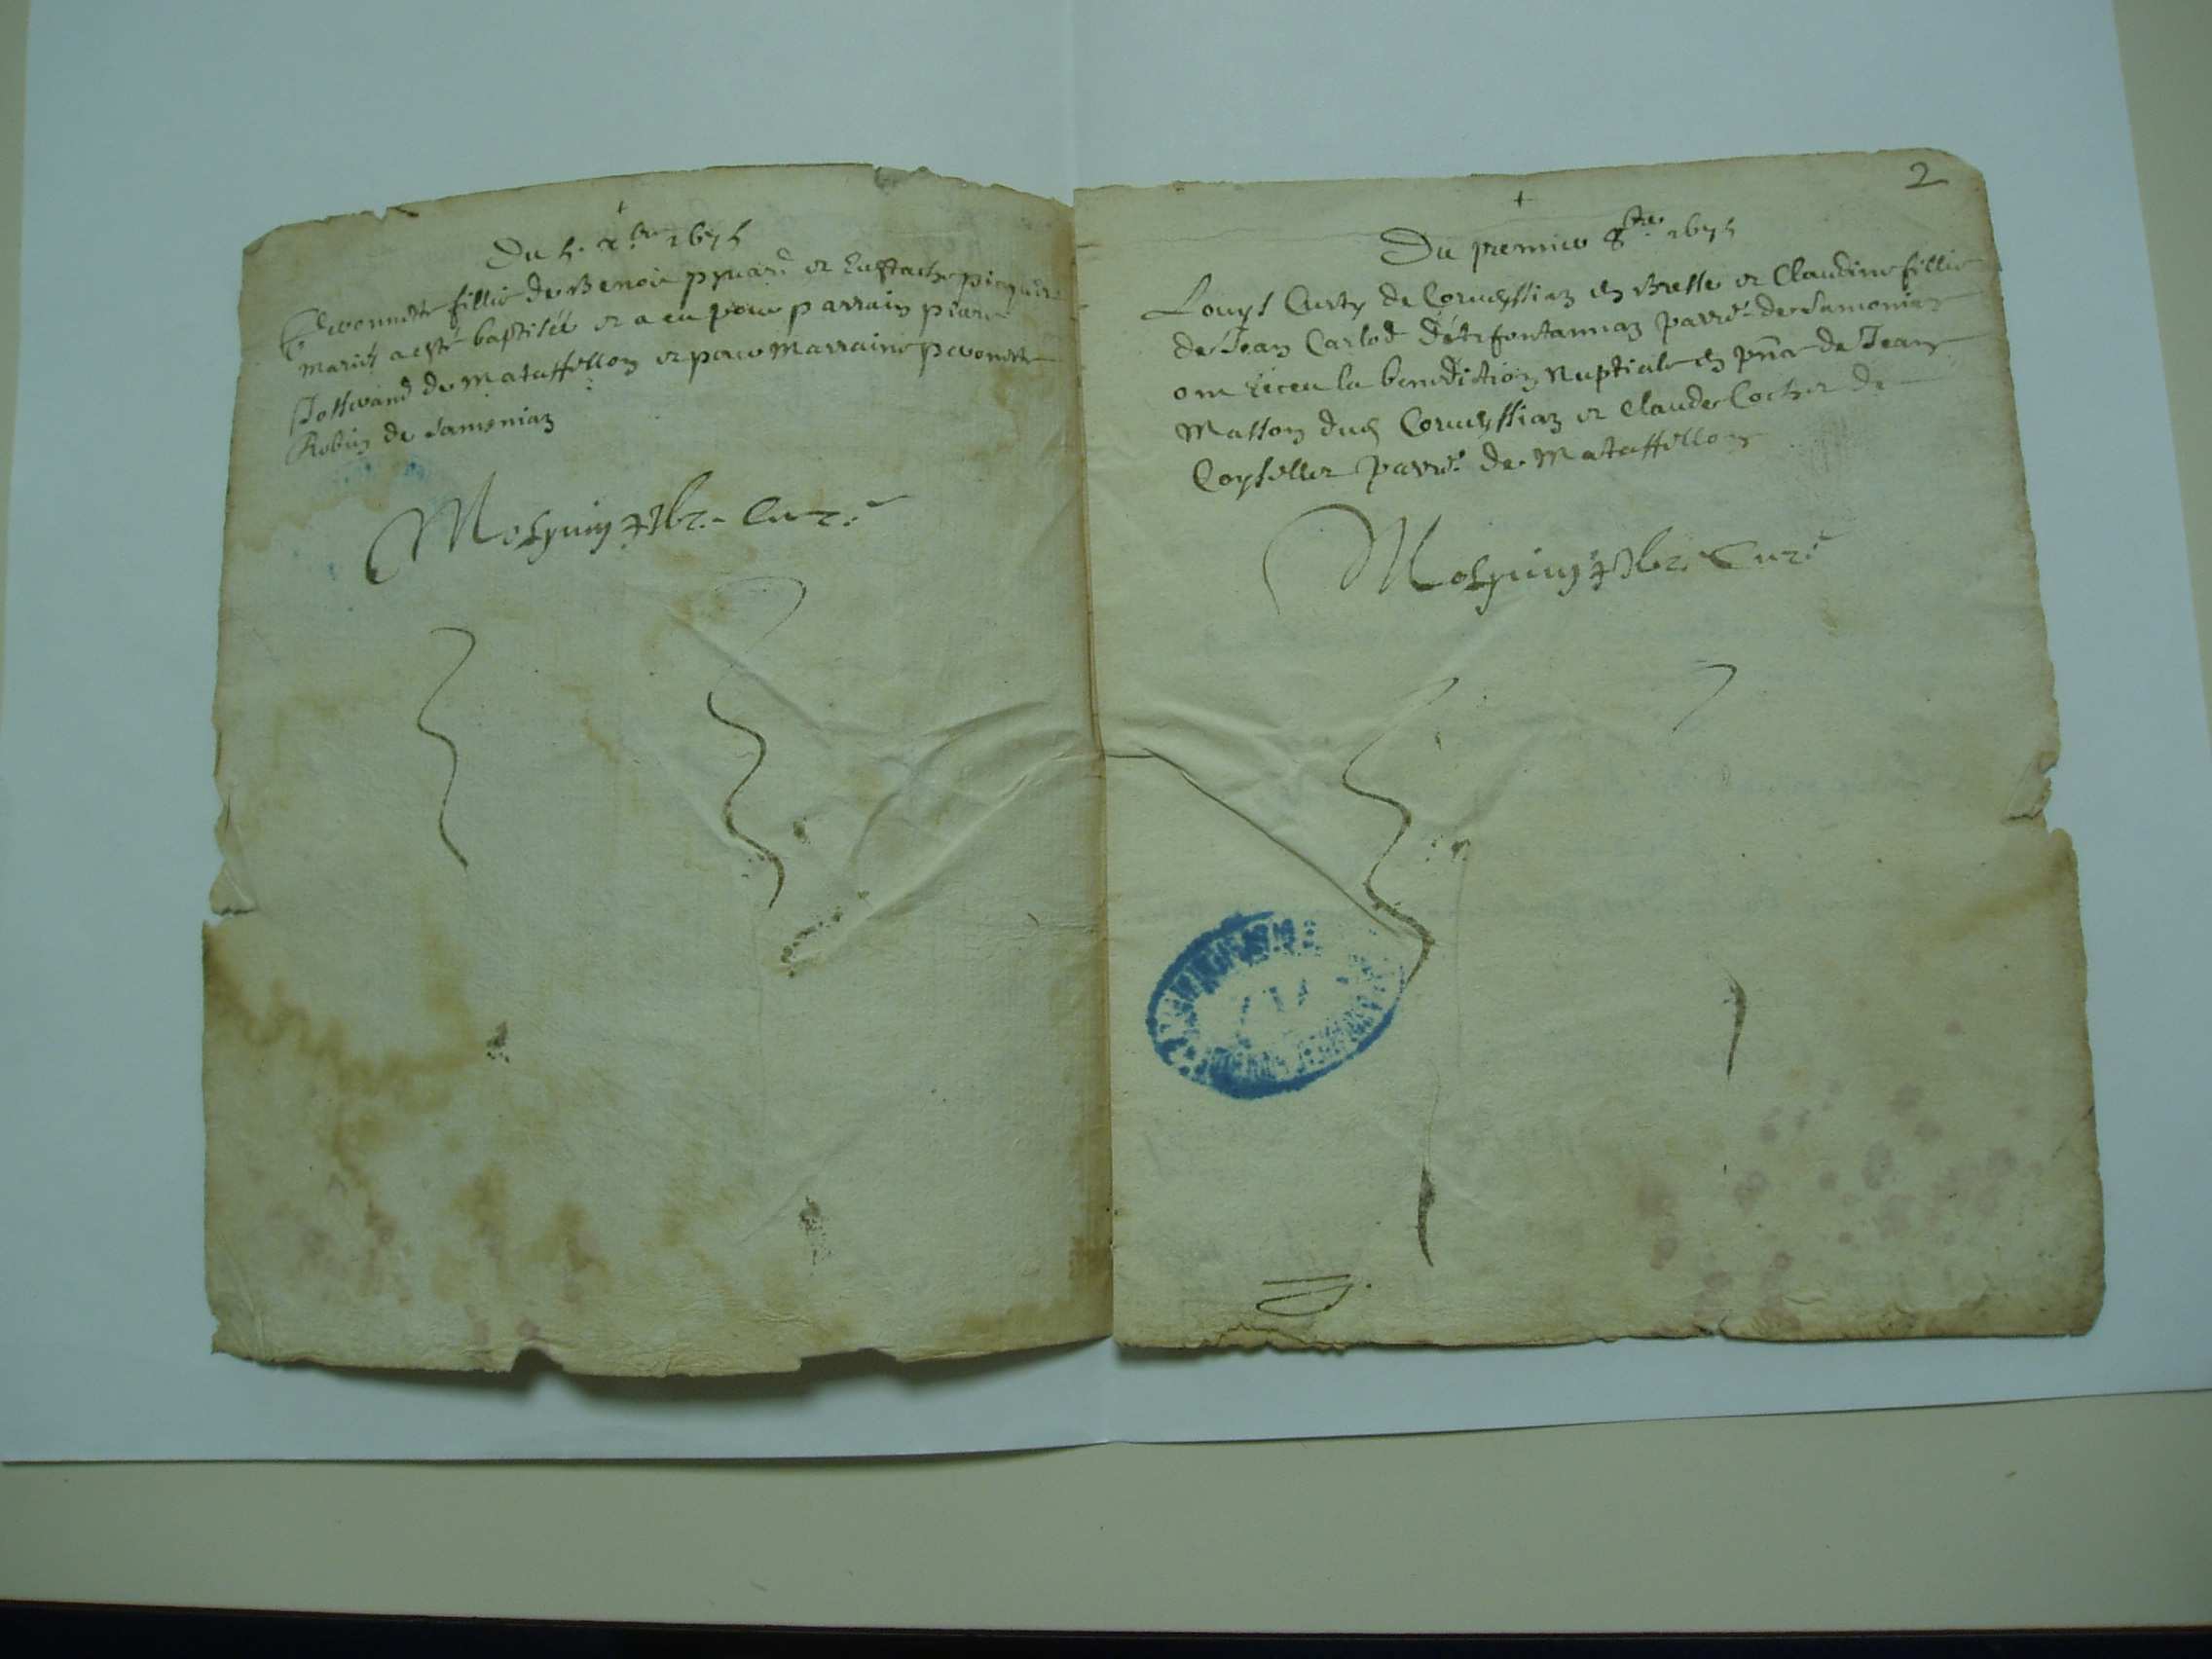 Du 5. xbre 1675
fillie de Benoit et Eustache
mariés a esté baptisée et a eu pour parrain piere
Josserand de Mataffellon et pour Marraine pevonette
Robin de Samoniaz
pbr. Curé
2
Du premier 8bre 1675
Louys Curty de Cormessiaz en Bresse et Claudine fillie
de Jean Carlod de fontannaz parre de Samoniaz
ont receu la benediction Nuptiale en pnce de Jean
Masson dud Cormessiaz et Claude Cochet de
Coyselliet parre de Mataffellon
pbr. Curé